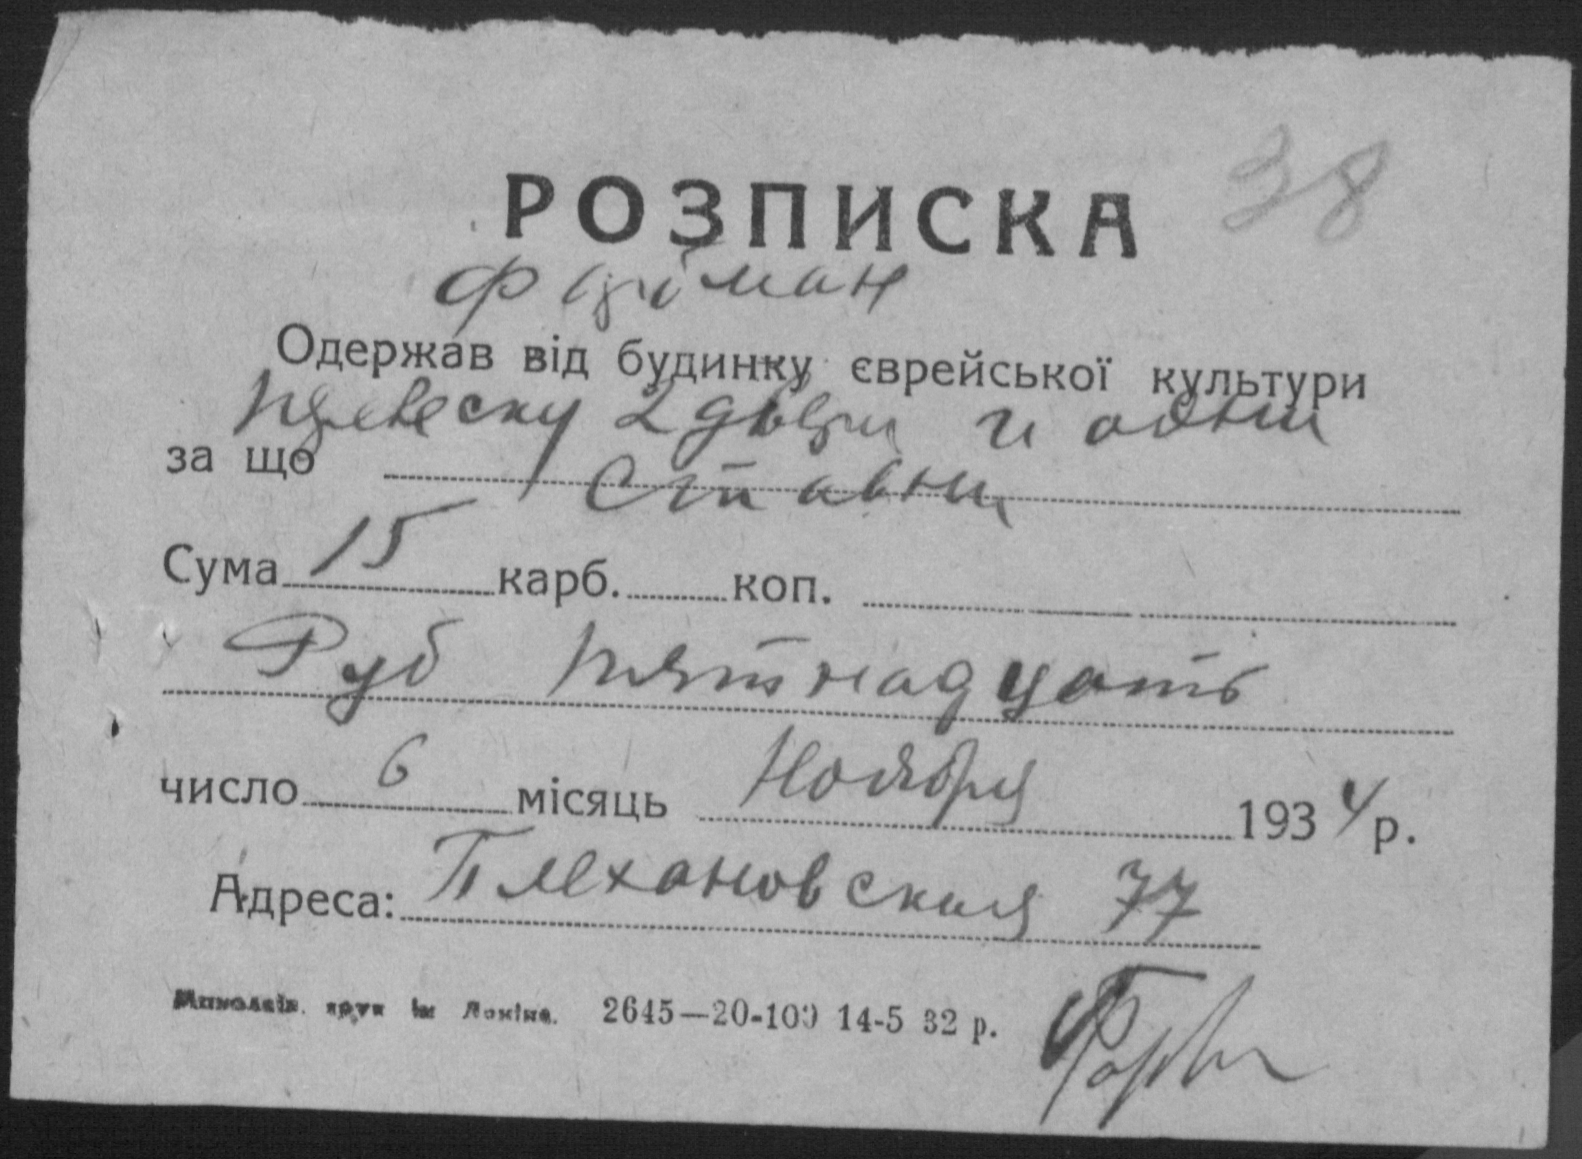 38
РОЗПИСКА
Одержав від будинку єврейської культури
навеску 2 двери и одни
за що
ставни
Сума 15 карб. коп.
Руб пятнадцать
число 6 місяць Ноября 1934 р.
Адреса: Плехановская 77
Миколаїв. друк ім Леніна. 2645—20-100 14-5 32 р.